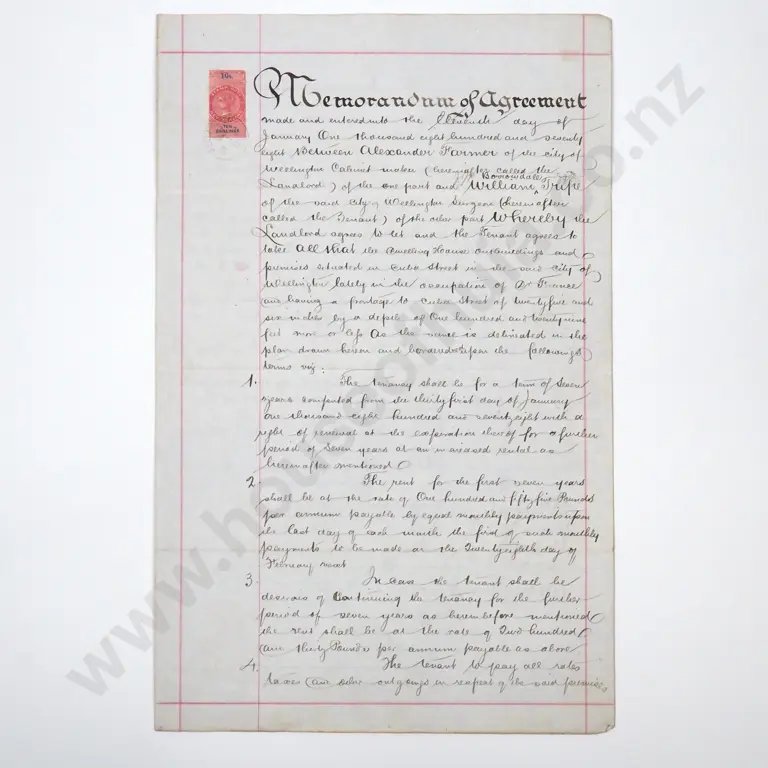 10s.
TEN
SHILLINGS
Memorandum of Agreement
made and entered into the Eleventh day of
January One thousand eight hundred and seventy
eight Between Alexander Farmer of the city of
Wellington Cabinet maker (hereinafter called the
Landlord) of the one part and William Borrowdale Tripe
of the said city of Wellington Surgeon (hereinafter
called the Tenant) of the other part Whereby the
Landlord agrees to let and the Tenant agrees to
take all that the dwelling House outbuildings and
premises situated in Cuba Street in the said city of
Wellington lately in the occupation of Dr France
and having a frontage to Cuba Street of twenty five and
six inches by a depth of One hundred and twenty nine
feet more or less As the same is delineated in the
plan drawn hereon and bordered upon the following
terms viz:
1. The tenancy shall be for a term of Seven
years computed from the thirty first day of January
one thousand eight hundred and seventy eight with a
right of renewal at the expiration thereof for a further
period of Seven years at an increased rental as
hereinafter mentioned
2. The rent for the first seven years
shall be at the rate of One hundred and fifty five Pounds
per annum payable by equal monthly payments upon
the last day of each month the first of such monthly
payments to be made on the Twenty eighth day of
February next
3 In case the tenant shall be
desirous of continuing the tenancy for the further
period of seven years as hereinbefore mentioned
the rent shall be at the rate of Two hundred
and thirty Pounds per annum payable as above
4. The tenant to pay all rates
taxes and other outgoings in respect of the said premises